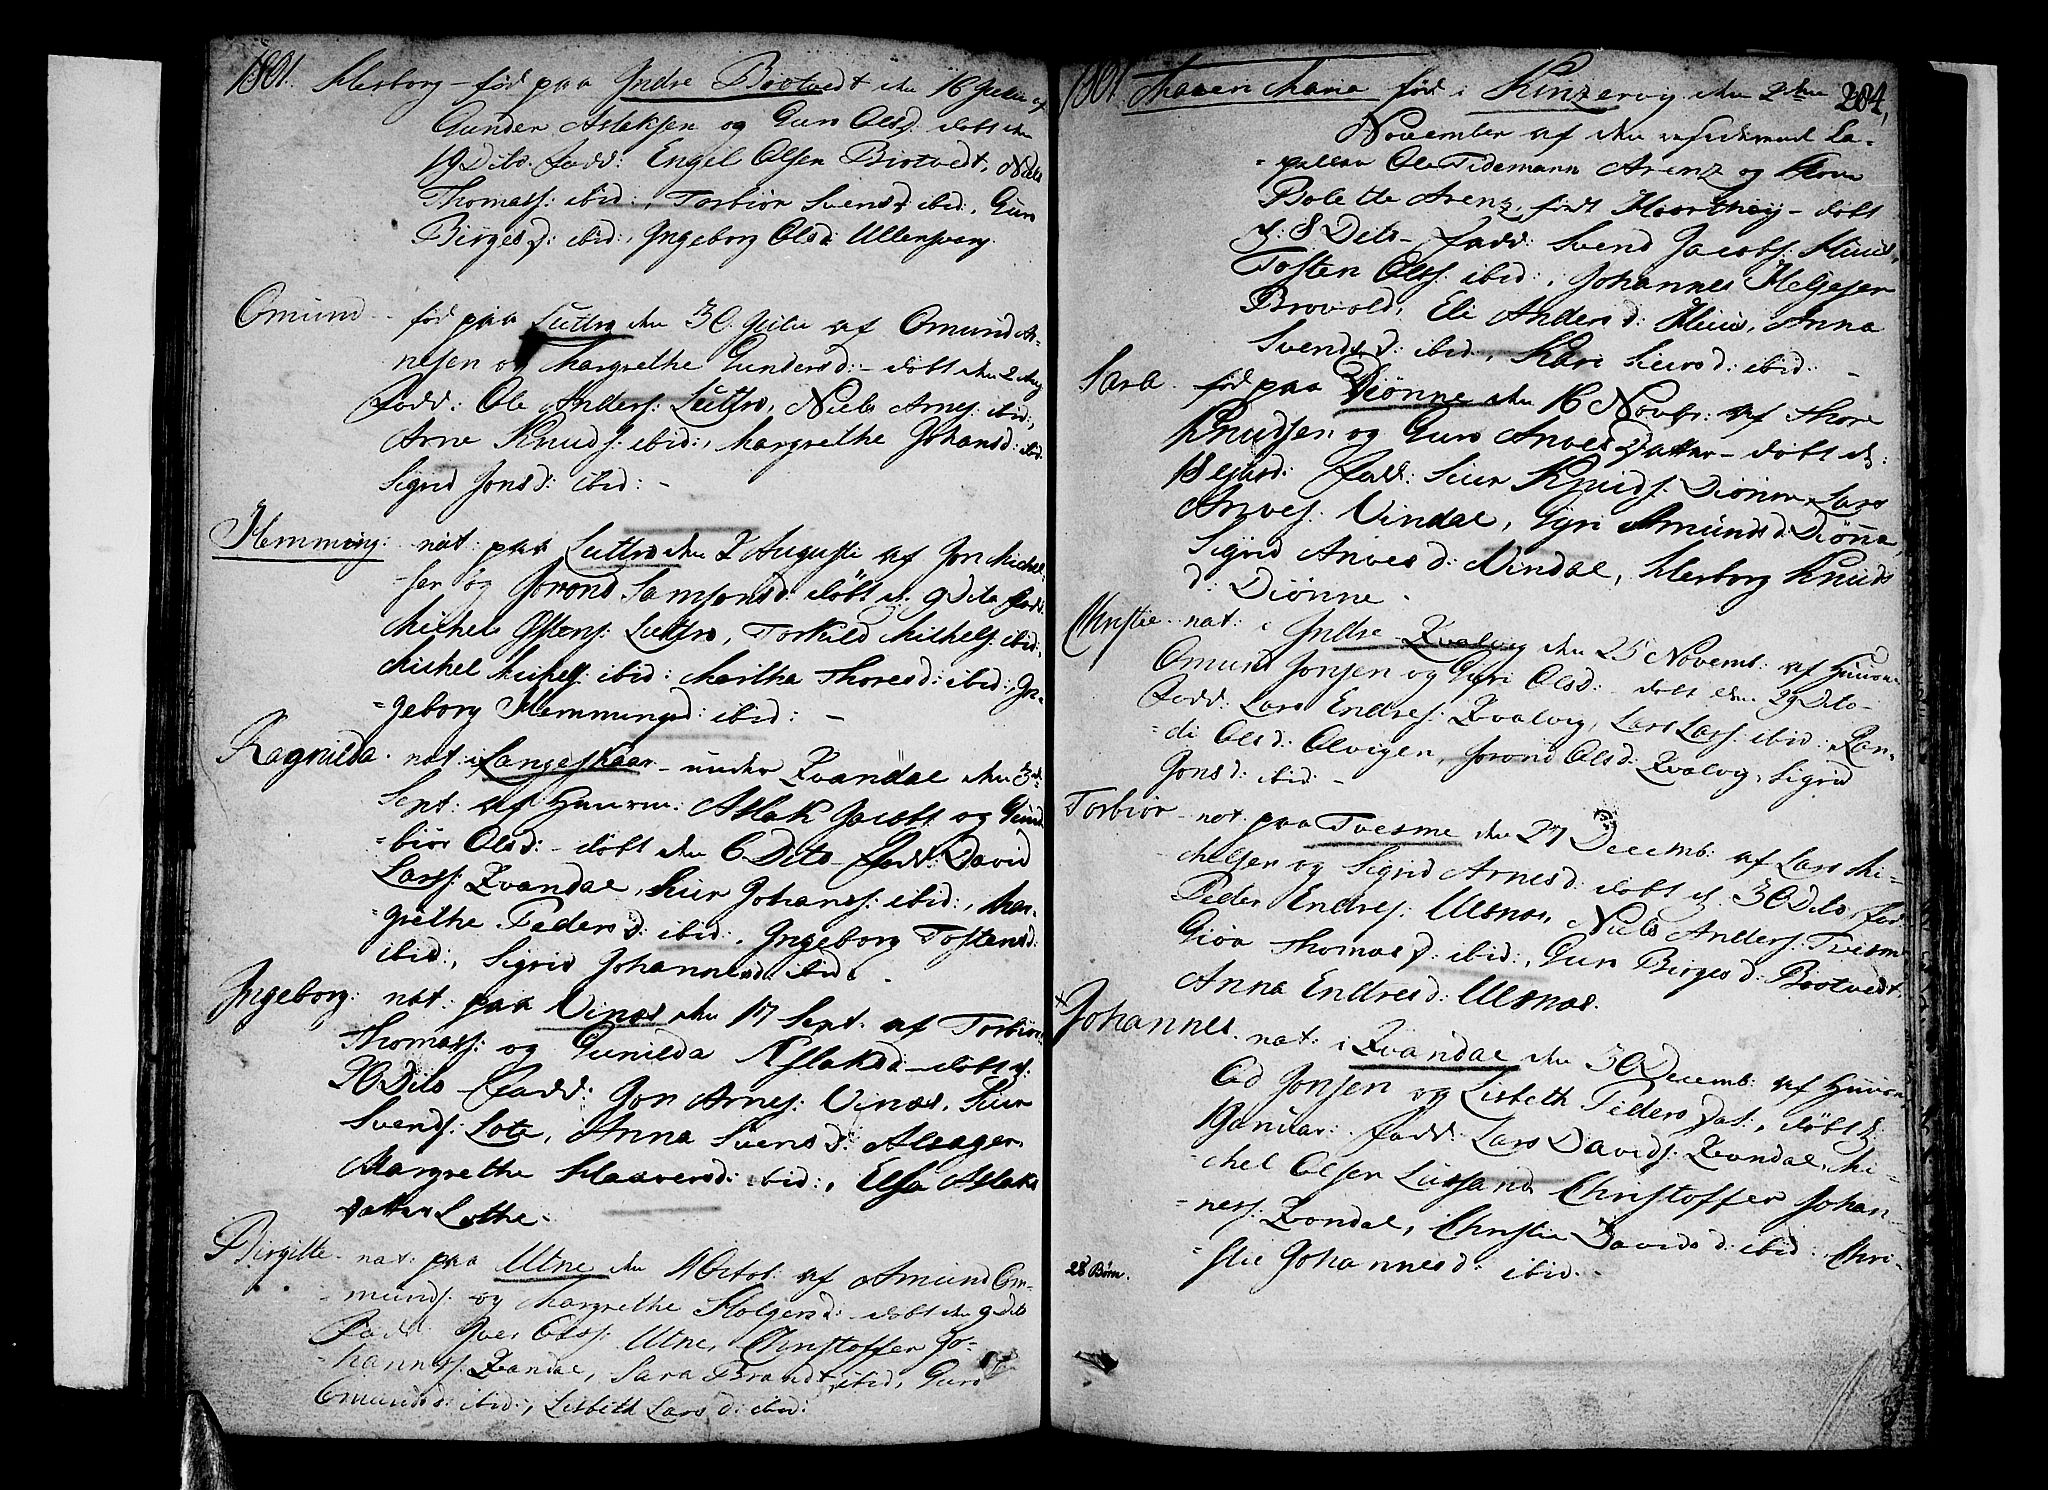 1801. Herborg – föd paa Indre Brotvedt den 16 Julii af
Gunder Aslaksen og Guro Olsd: döbt den
19 Dito. Fadd: Engel Olsen Brotvedt, Niels
Thomass: ibid:, Torbiör Svensd: ibid:, Guro
Birgesd: ibid:, Ingeborg Olsd: Ullensvang.
Omund – föd paa Luttro den 30 Julii af Omund Ar-
nesen og Margrethe Gundersd: – döbt den 2 Aug
Fadd: Ole Anders: Luttro, Niels Arnes: ibid:,
Arne Knuds: ibid:, Margrethe Johansd: ibid
Sigrid Jonsd: ibid: –
Hemming: nat: paa Luttro den 7 Augusti af Jon Michel-
sen og Jorond Samsonsd: döbt d: 9 Dito Fadd:
Michel Östens: Luttro, Torkild Michels: ibid:,
Michel Michels: ibid: Martha Thoresd: ibid: In-
geborg Hemmingsd: ibid: –
Ragnilda. nat: i Langeskaar – under Qvandal den 3die
Sept: af Huusm: Aslak Jacobs og Gund-
biör Olsd: – döbt den 6 Dito – Fadd: David
Larss: Qvandal, Siur Johanss: ibid:, Mar-
grethe Pedersd: ibid:, Ingeborg Tostensd:
ibid:, Sigrid Johannesd: ibid: –
Ingeborg: nat: paa Vinæs den 17 Sept: af Torbiörn
Thomass: og Gunilda Aslaksd: – döbt d:
20 Dito – Fadd: Jon Arnes: Vinæs, Siur
Svends: Lote, Anna Svensd: Alsager
Margrethe Haaversd: ibid:, Elsa Aslaks
datter Lothe. –
Birgitte – nat: paa Utne den Octob: af Amund Om-
munds: og Margrethe Holgersd: – döbt den 9 Dito
Fadd: Iver Olss: Utne, Christoffer Jo-
hanness: Qvandal, Sara Brandt, ibid:, Guro
Omundsd: ibid:, Lisbeth Larsd: ibid:
1801. Maren Marie föd i Kinzervig den 2den 204,
November af den residerende Ca-
pellan Ole Tidemann Arenz og Kone
Bolette Arenz, födt Hoorthøy – döbt
d: 8 Dito – Fadd: Svend Jacobs: Huus,
Tosten Olss: ibid:, Johannes Helgesen
Brovold, Eli Andersd: Huus, Anna
Svendsd: ibid:, Kari Siursd: ibid: –
Sara – föd paa Diönne den 16 Novbr: af Thore
Knudsen og Guro Arvesdatter – döbt d:
18 Fadd: Siur Knuds: Diönne, Lars
Arves: Vindal, Gyri Amundsd: Diönne,
Sigrid Arvesd: Vindal, Herborg Knuds
d: Diönne –
Christie – nat: i Indre Qvalvig den 25 Novemb: af Huusm
Omund Jonsen og Gyri Olsd: – döbt den 29 Dito –
Fadd: Lars Endres: Qvalvig, Lars Lars: ibid:, Ran-
di Olsd: Alvigen, Jorond Olsd: Qvalvig, Sigrid
Jonsd: ibid: –
Torbiör – nat: paa Tvesme den 27 Decemb: af Lars Mi-
chelsen og Sigrid Arnesd: döbt d: 30 Dito, Fadd
Peder Endres: Ulsnæs, Niels Anders: Tvesme
Giöa Thomasd: ibid:, Guro Birgesd: Brotvedt,
Anna Endresd: Ulsnæs.
× Johannes. nat: i Qvandal den 30 Decemb: af Huusm
Od Jonsen og Lisbeth Peders Dat:, döbt d:
1 Januar: Fadd: Lars Davids: Qvandal, Mi-
chel Olsen Lussand, Christoffer Johan-
ness: Qvandal, Christie Davidsd: ibid: Chri-
stie Johannesd: ibid: –
28 Børn.